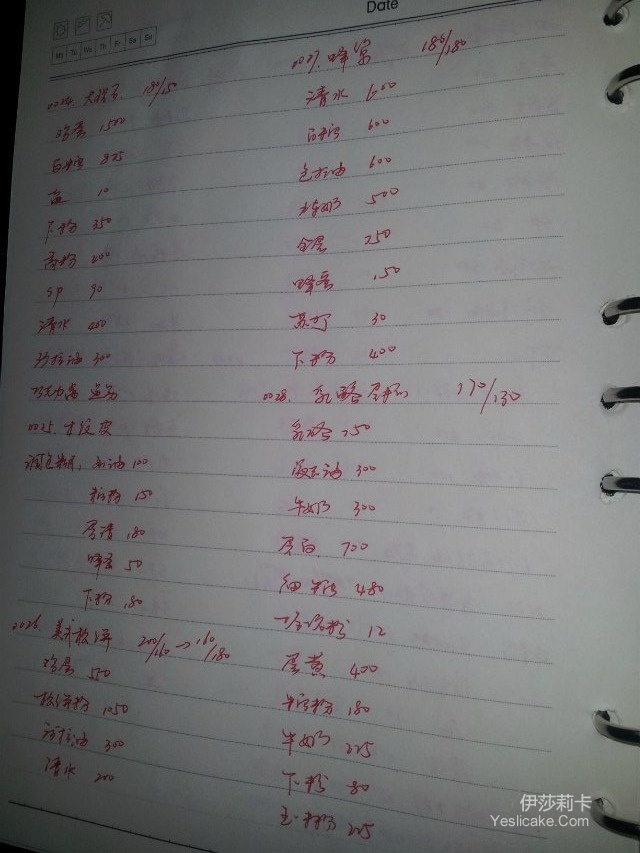 Date
Mo Tu We Th Fr Sa Su
0024. 180/150
鸡蛋 1500
白糖 825
盐 10
下粉 350
高粉 400
SP 90
清水 400
沙拉油 300
巧克力
0025.
奶油 100
糖粉 150
蛋清 180
蜂蜜 50
下粉 180
0026 美式松饼 200/160→160/180
鸡蛋 500
松饼粉 1050
沙拉油 300
清水 200
0027. 蜂窝 180/180
清水 600
白糖 600
色拉油 600
炼奶 500
全蛋 750
蜂蜜 150
苏打 30
下粉 400
0028. 乳酪 170/130
乳酪 750
油 300
牛奶 300
蛋白 700
细糖 480
塔塔粉 12
蛋黄 400
糖粉 180
牛奶 225
下粉 80
玉米粉 225
伊莎莉卡
Yeslicake.Com